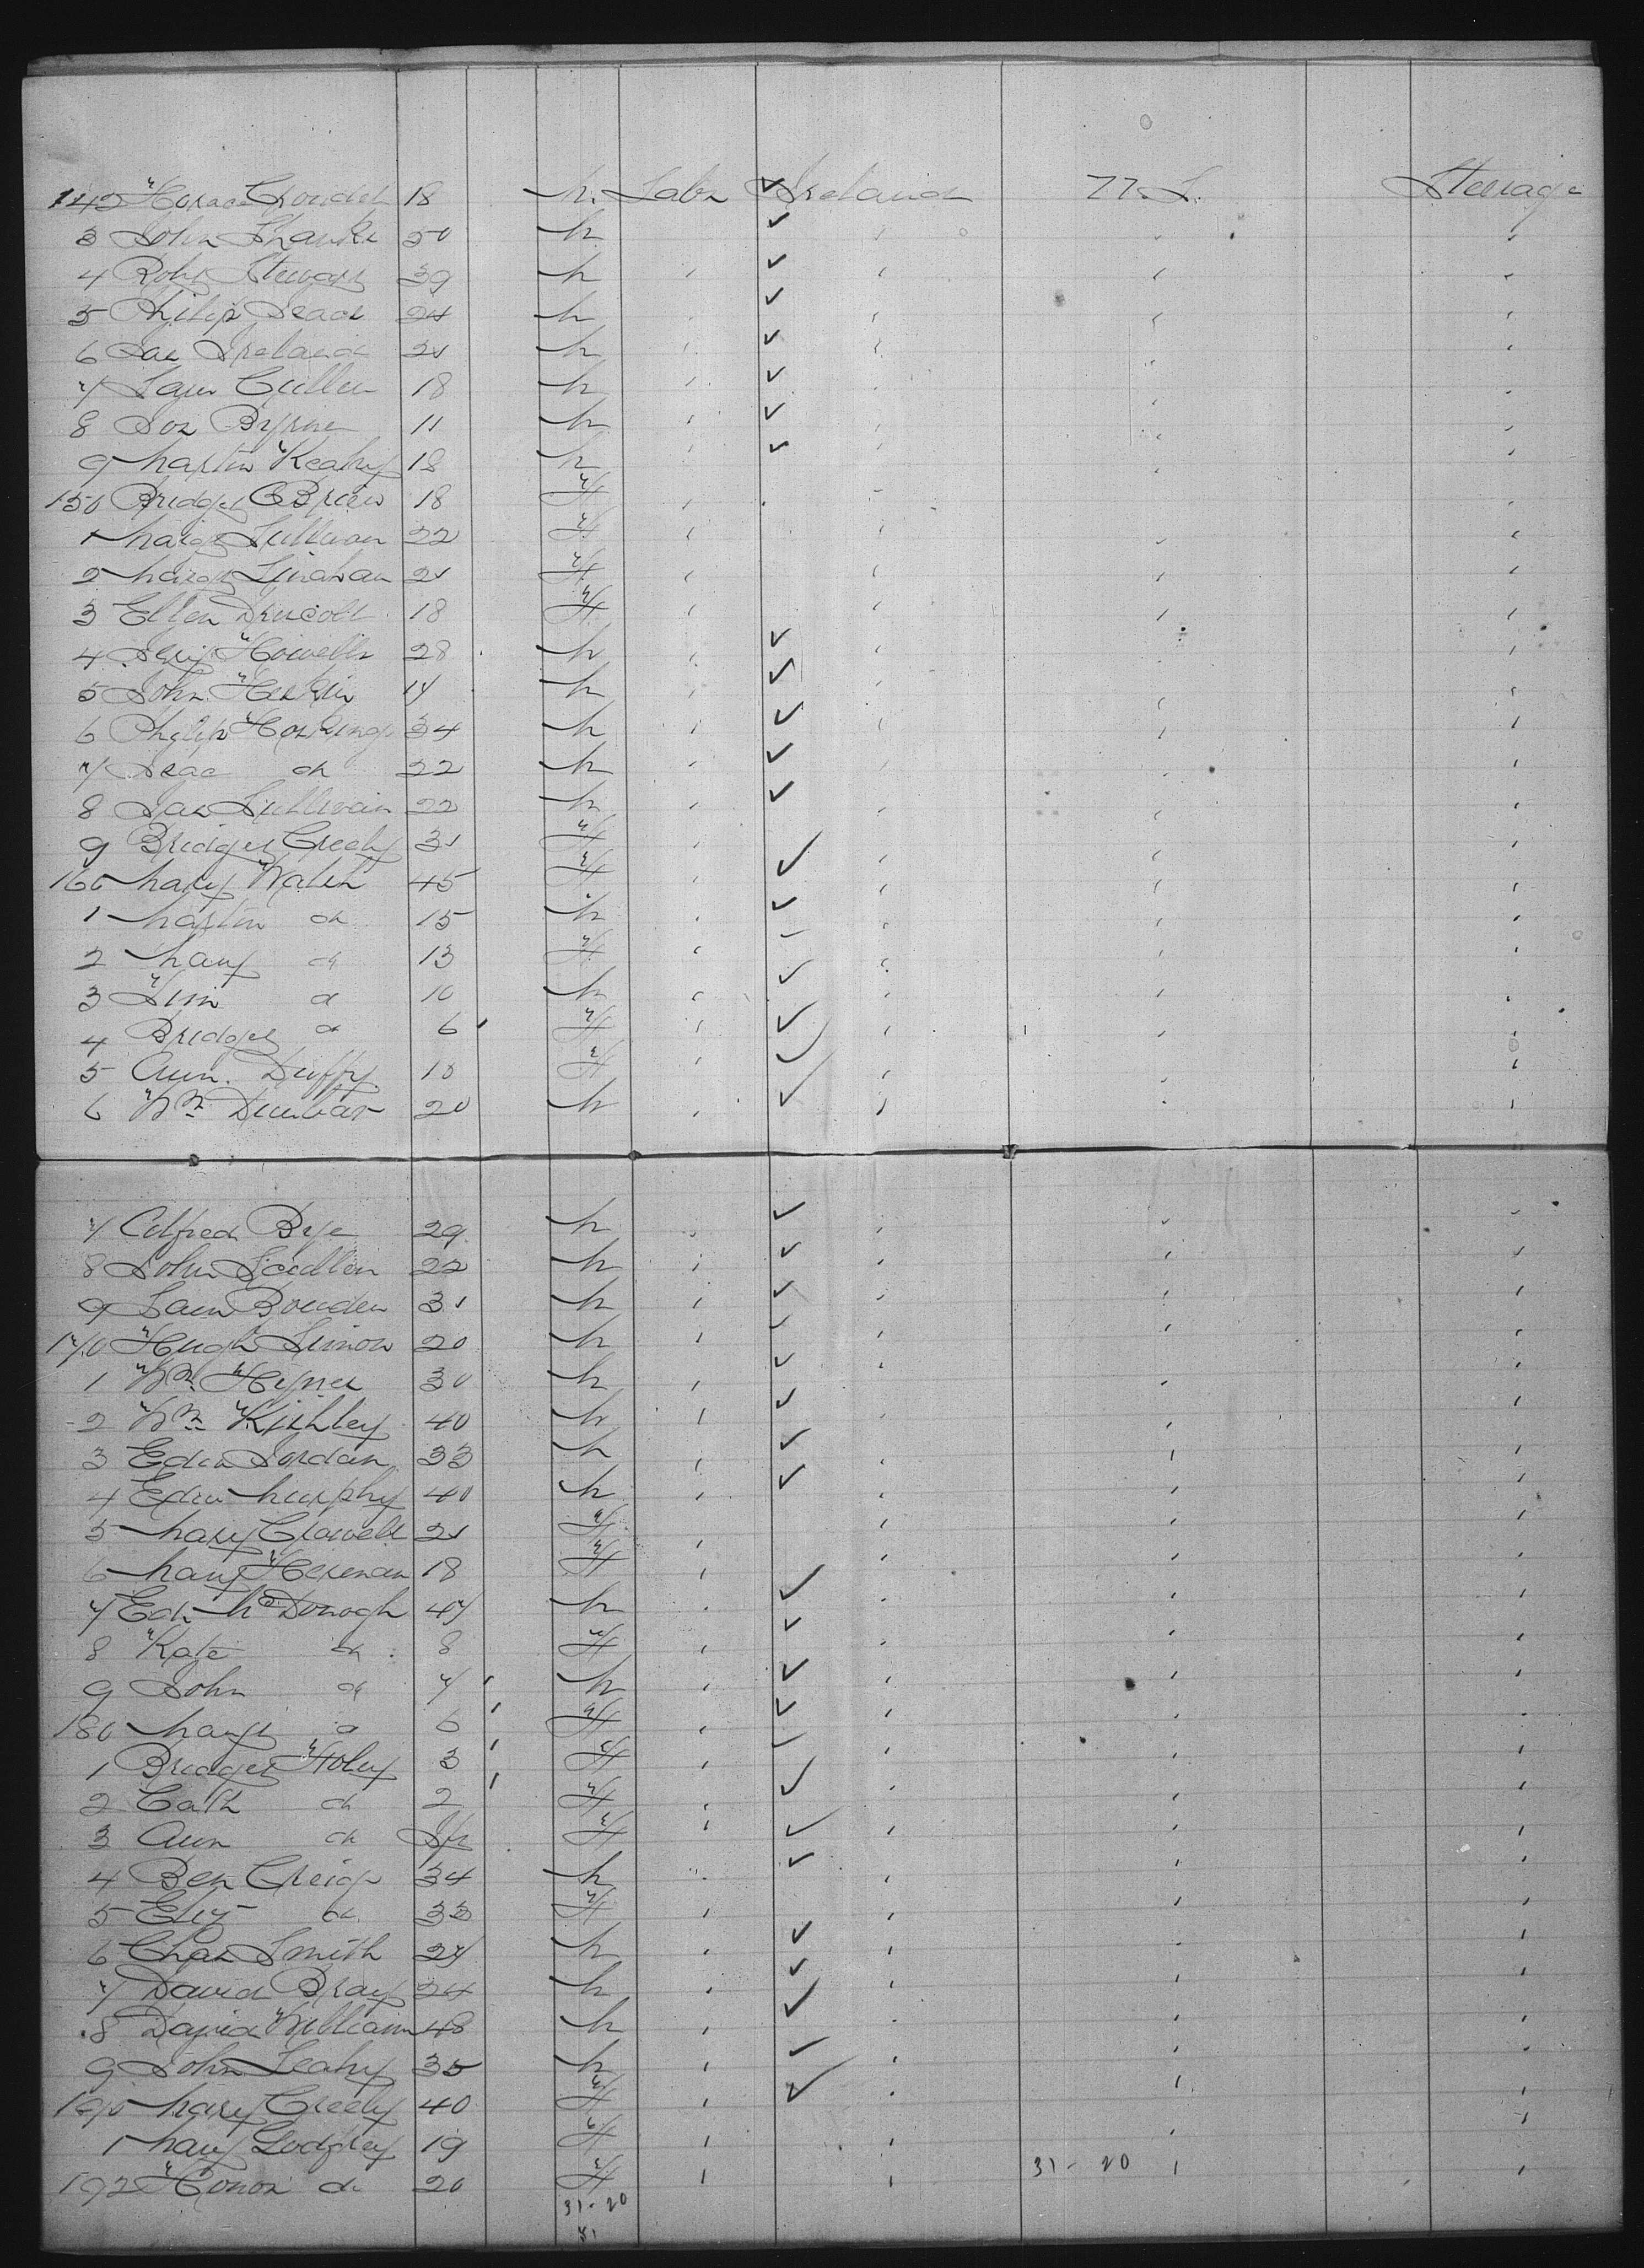 142 Horace 18 M. Labr ✓ Ireland U.S. Steerage
3 John Shanks 50 M ✓
4 Robt Stewart 39 M ✓
5 Philip 24 M ✓
6 Jas Ireland 21 M ✓
7 Saml Cullen 18 M ✓
8 Jos Byrne 11 M ✓
9 Martin Keahy 18 M ✓
150 Bridget OBrien 18 F
1 Margt Sullivan 22 F
2 Margt Linahan 21 F
3 Ellen Driscoll 18 F
4 Howells 28 M ✓
5 John Heskin 17 M ✓
6 Philip Hoskings 34 M ✓
7 Isaac do 22 M ✓
8 Jas Sullivan 22 M ✓
9 Bridget Greely 31 F
160 Mary Walsh 45 F ✓
1 Martin do 15 M ✓
2 Mary do 13 F ✓
3 Jim do 10 M ✓
4 Bridget do 6 F ✓
5 Ann. Duffy 18 F ✓
6 Wm Dunbar 20 M ✓
7 Alfred Bye 29 M ✓
8 John 22 M ✓
9 Saml Bowden 31 M ✓
170 Hugh Simon 20 M ✓
1 Wm Hynes 30 M ✓
2 Wm Kishley 40 M ✓
3 Edw Jordan 33 M ✓
4 Edw Murphy 40 M ✓
5 Mary 21 F
6 Mary Hesenan 18 F
7 Ed. McDonogh 47 M ✓
8 Kate do 8 F ✓
9 John do 7 M ✓
180 Margt do 6 F ✓
1 Bridget Foley 3 F ✓
2 Cath do 2 F ✓
3 Ann do Inf F ✓
4 Ben Greig 34 M ✓
5 Eliz do 33 F
6 Chas Smith 27 M ✓
7 David Bray 24 M ✓
8 David William 48 M ✓
9 John Leahy 35 M ✓
190 Mary Greely 40 F ✓
1 Mary Godfrey 19 F
192 Honor do 20 F 31-20
31-20
51